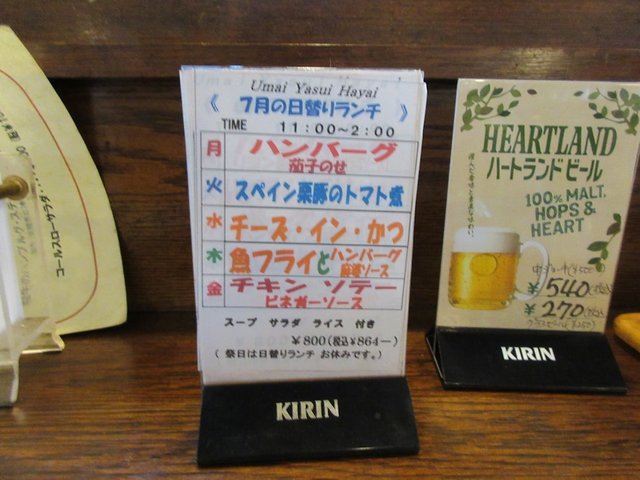 Umai Yasui Hayai
《 7月の日替りランチ 》
TIME 11:00～2:00
月 ハンバーグ
茄子のせ
火 スペイン栗豚のトマト煮
水 チーズ・イン・かつ
木 魚フライとハンバーグ
麻婆ソース
金 チキン ソテー
ビネガーソース
スープ サラダ ライス 付き
￥800(税込￥864ー)
( 祭日は日替りランチ お休みです。)
KIRIN
HEARTLAND
ハートランドビール
100% MALT.
HOPS &
HEART
￥540
￥270
KIRIN
コールスローサラダ